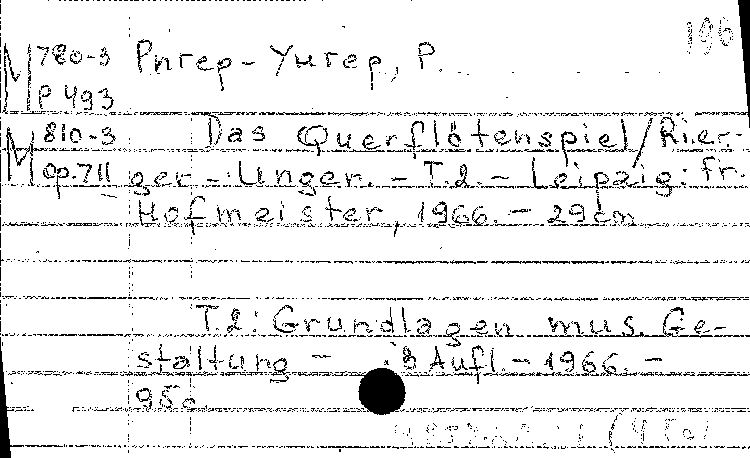 196
M 780-3 Ригер-Унгер, Р.
Р 493
M 810-3 Das Querflötenspiel/Rier-
op.711 ger-Unger. - T.2. - Leipzig: Fr.
Hofmeister, 1966. - 29cm
T.2: Grundlagen mus. Ge-
staltung - 3 Aufl. - 1966. -
95c